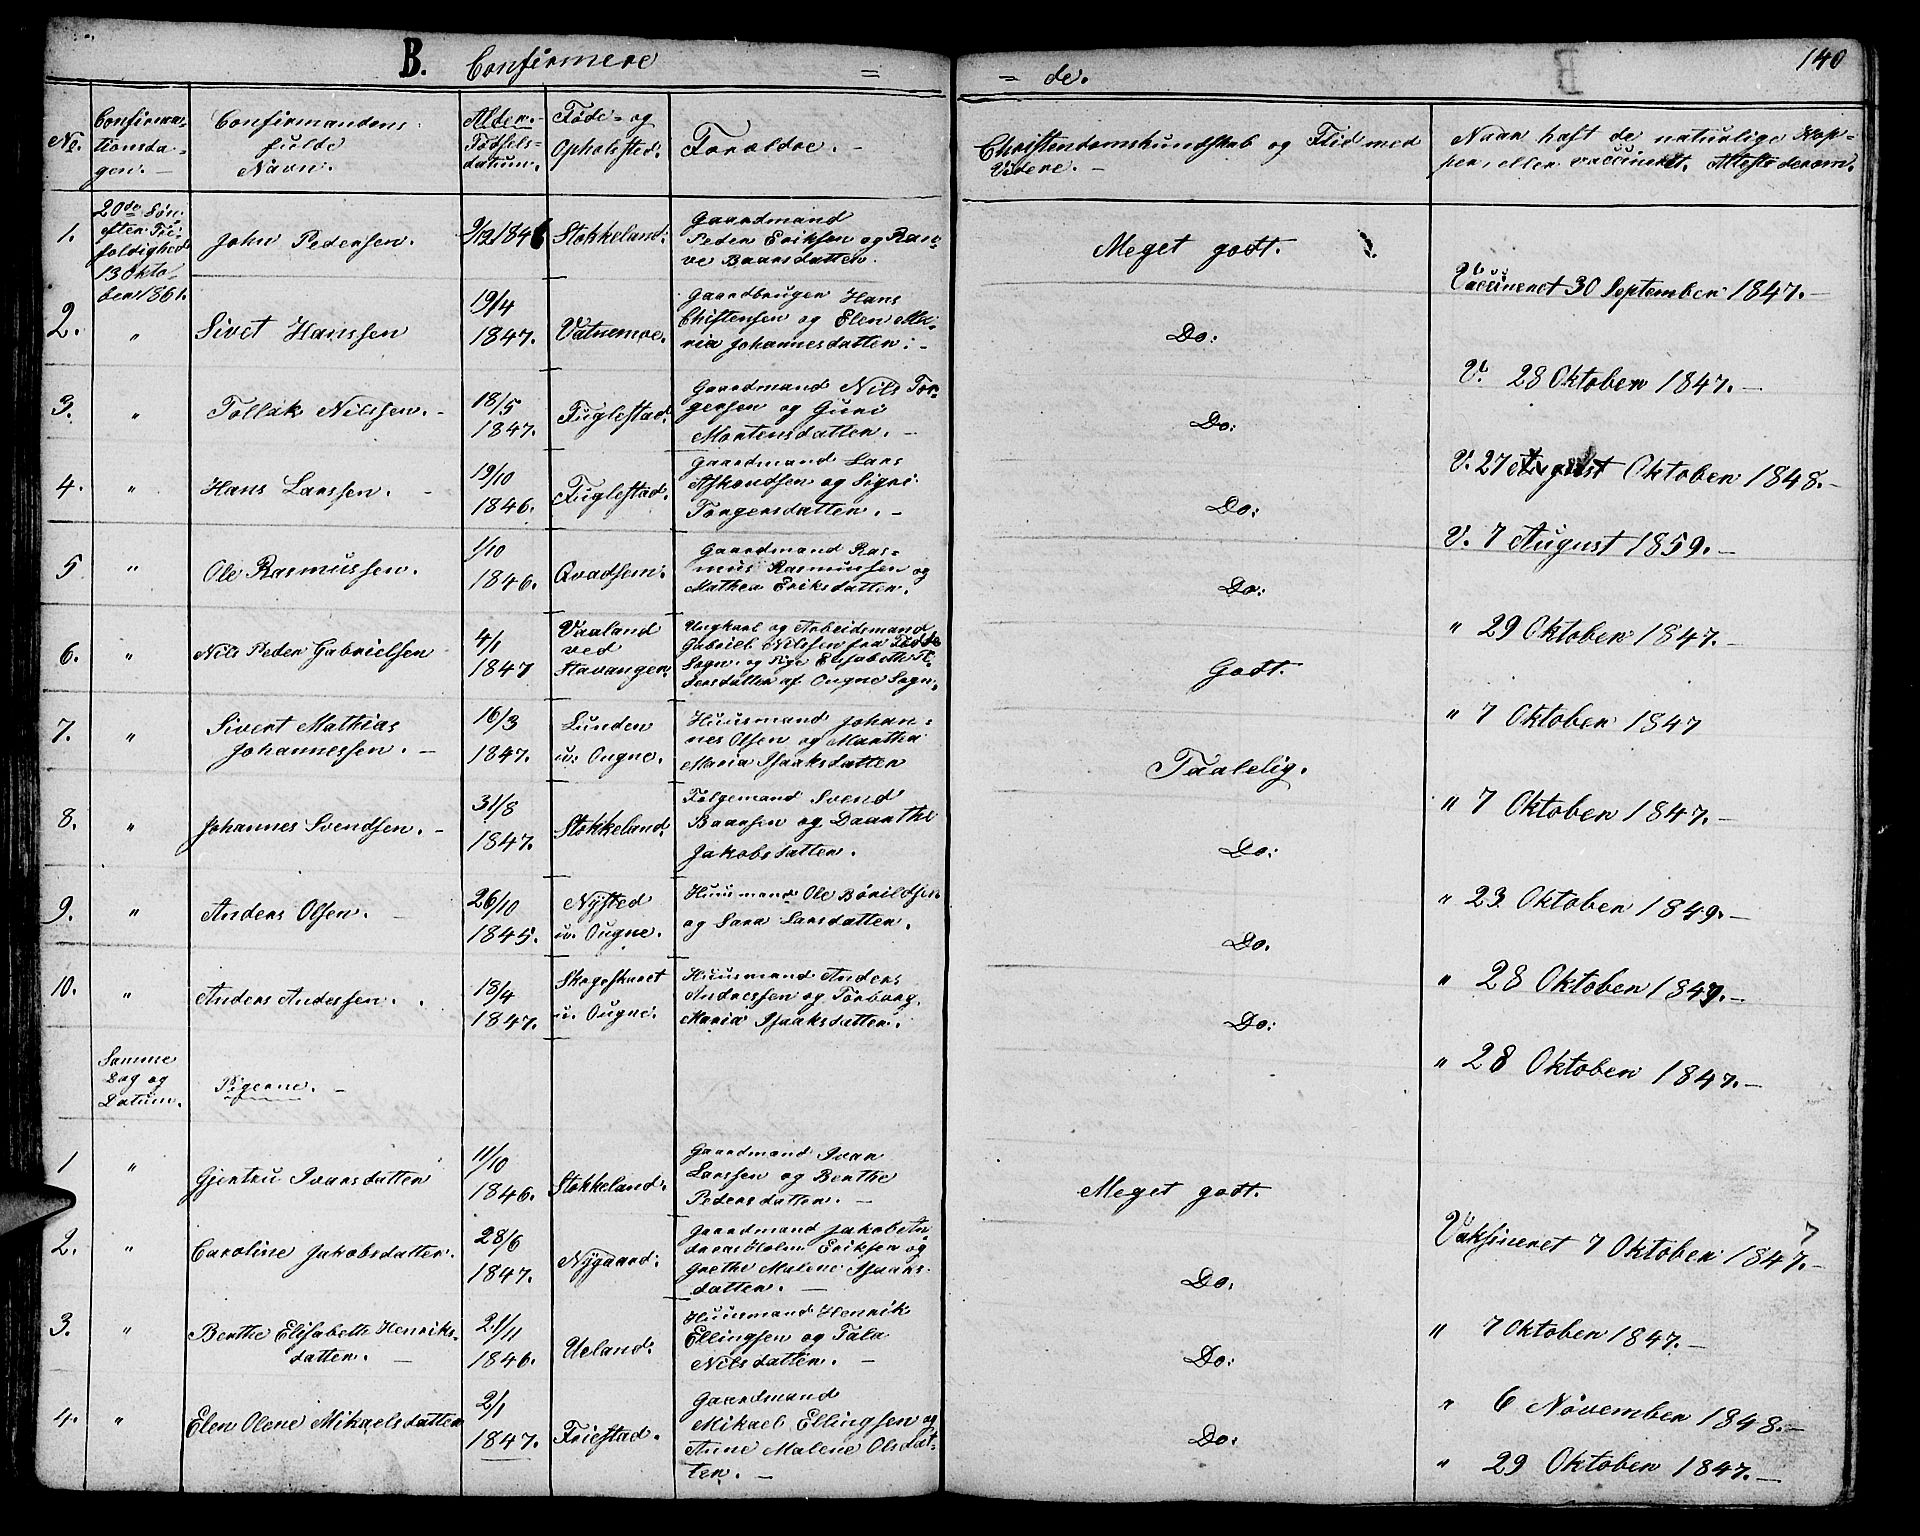 B. Confirmere = = de. 140
No.
Confirma-
tionsda-
gen. -
Confirmandens
fulde
Navn.
Alder.
Fødsels-
datum.
Føde- og
Opholdsted.
Forældre. -
Christendomskundskab og Flid med
Videre. -
Naar haft de naturlige Kop-
per, eller vaccineret. Attest derom.
1.
20de Søn.
efter Tre-
foldighed
13 Okto-
ber 1861.
John Pedersen.
9/12 1846
Stokkeland.
Gaardmand
Peder Eriksen og Ran-
ve Baarsdatter.
Meget godt.
Vaccineret 30 September 1847. -
2. "
Sivet Hanssen
19/4
1847.
Vatnemoe.
Gaardbruger Hans
Chistensen og Elen Ma-
ria Johannesdatter. -
Do:
V. 28 Oktober 1847. -
3. "
Tollak Nilssen. -
18/5
1847.
Fuglestad.
Gaardmand Nils Tor-
gersen og Guri
Mortensdatter. -
Do:
V. 27 August Oktober 1848. -
4. "
Hans Larssen. -
19/10
1846.
Fuglestad.
Gaardmand Lars
Askondsen og Signi
Torgersdatter. -
Do:
V. 7 August 1859. -
5 "
Ole Rasmussen.
1/10
1846.
Qvadsem.
Gaardmand Ras-
mus Rasmussen og
Mathea Eriksdatter.
Do:
" 29 Oktober 1847. -
6. "
Nils Peder Gabrielsen
4/1
1847
Vaaland
ved
Stavanger.
Ungkarl og Arbeidsmand
Gabriel Nilssen fra
Sogn og Pige Elisabeth
dersdatter af Ougne Sogn.
Godt.
" 7 Oktober 1847
7. "
Sivert Mathias
Johannessen. -
16/3
1847.
Lunden
u: Ougne.
Huusmand Johan-
nes Olsen og Martha
Maria Isaaksdatter
Taalelig.
" 7 Oktober 1847. -
8. "
Johannes Svendsen. -
31/8
1847.
Stokkeland.
Følgemand Svend
Baarsen og Daarthe
Jakobsdatter.
Do:
" 23 Oktober 1849. -
9. "
Anders Olsen. -
26/10
1845.
Nysted
u. Ougne.
Huusmand Ole Børildsen
og Sara Larsdatter.
Do.
" 28 Oktober 1847. -
10. "
Anders Andessen.
18/4
1847.
Skogeskaret
u. Ougne.
Huusmand Anders
Andressen og Torborg
Maria Isaaksdatter.
Do:
" 28 Oktober 1847. -
Samme
Dag og
Datum.
Pigerne. -
1 "
Gjertru Ivarsdatter
11/10
1846.
Stokkeland.
Gaardmand Ivar
Larssen og Berthe
Pedersdatter. -
Meget godt.
Vaksineret 7 Oktober 1847. -
7
2. "
Caroline Jakobsdatter.
28/6
1847.
Nygaard.
Gaardmand Jakob An-
dreas Holm Eriksen og
Grethe Malene Isaaks-
datter. -
Do:
" 7 Oktober 1847. -
3. "
Berthe Elisabeth Henriks-
datter. -
21/11
1846.
Ueland.
Huusmand Henrik
Ellingsen og Tala
Nilsdatter. -
Do:
" 6 November 1848. -
4. "
Elen Olene Mikaelsdatter
2/1
1847.
Friestad.
Gaardmand
Mikael Ellingsen og
Anne Malene Olsdat-
ter. -
Do:
" 29 Oktober 1847. -